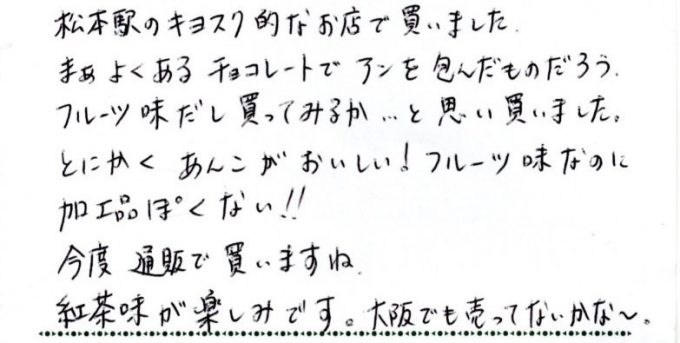 松本駅のキヨスク的なお店で買いました.
まぁよくあるチョコレートでアンを包んだものだろう.
フルーツ味だし買ってみるか…と思い買いました。
とにかくあんこがおいしい!フルーツ味なのに
加工品ぽくない!!
今度通販で買いますね.
紅茶味が楽しみです。大阪でも売ってないかな〜。